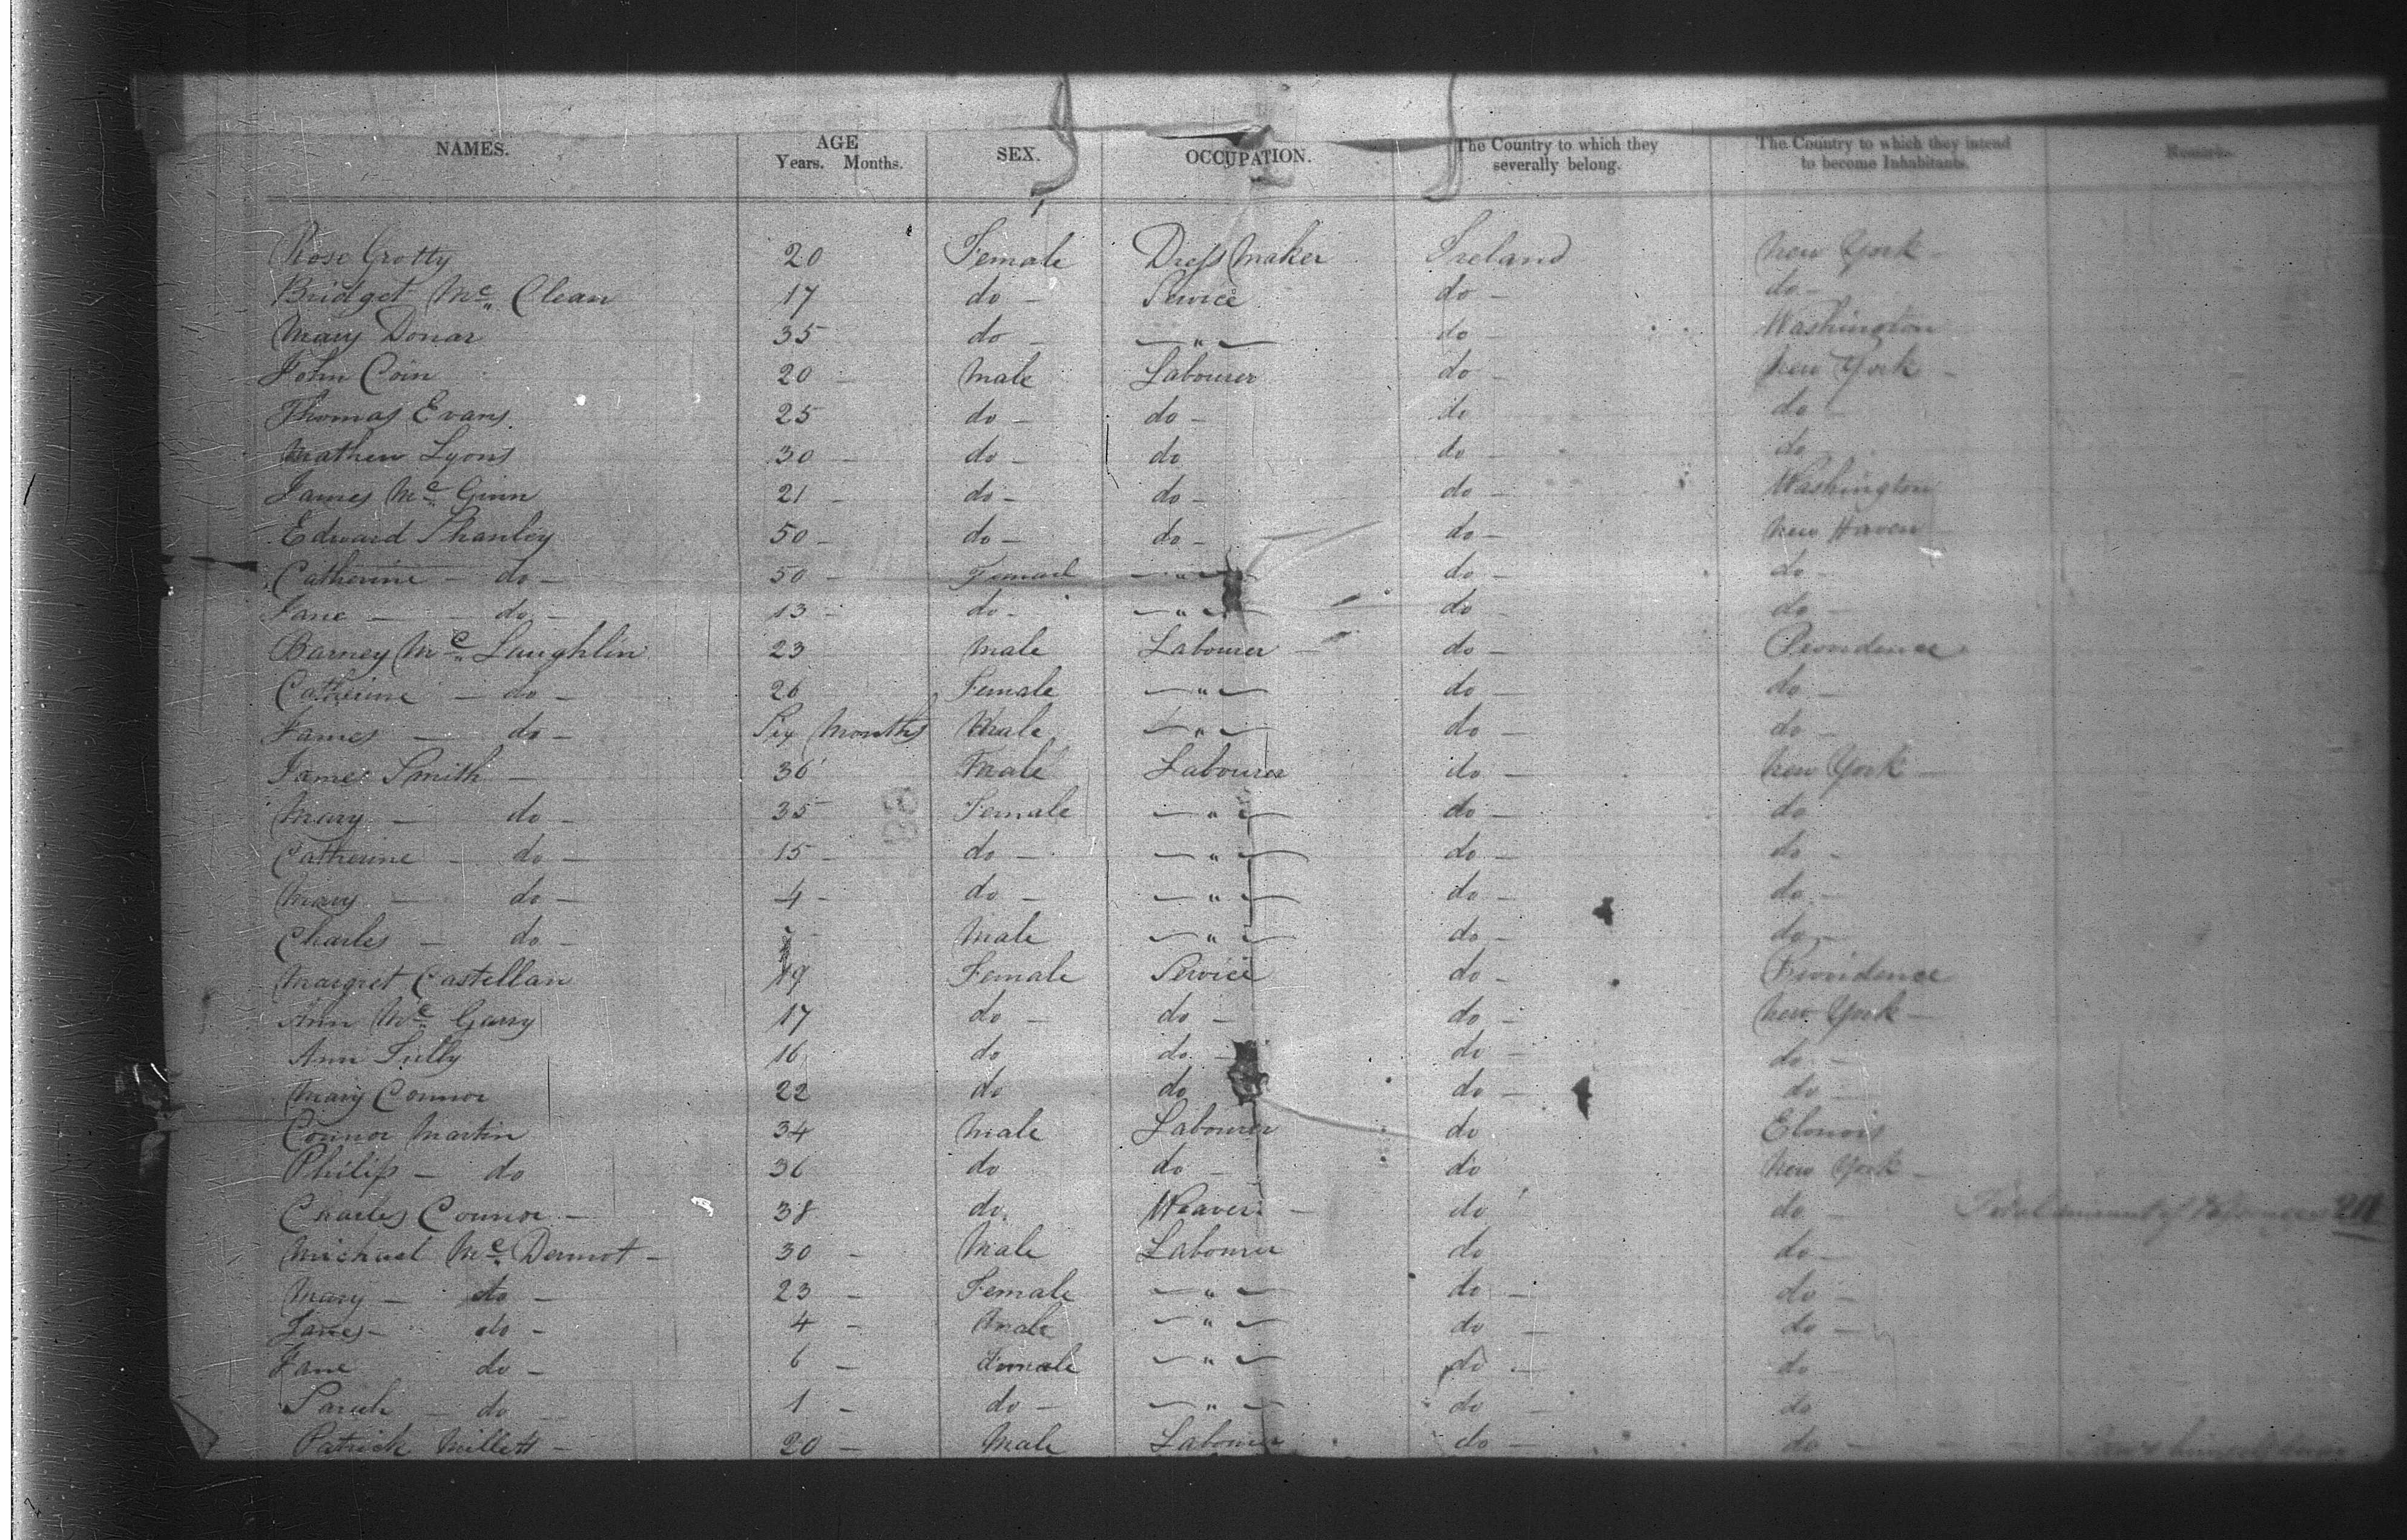 NAMES. AGE Years. Months. SEX. OCCUPATION. The Country to which they severally belong. The Country to which they intend to become Inhabitants. Remarks.
Rose Grotty 20 Female Dress Maker Ireland New York -
Bridget Mc Clean 17 do - Service do - do -
Mary Donar 35 do - — " — do - Washington
John Coin 20 - Male Labourer do - New York -
Thomas Evans 25 do - do - do do -
Mathew Lyons 30 - do - do do - do
James Mc Ginn 21 - do - do - do - Washington
Edward Shanley 50 - do - do - do - New Haven
Catherine - do - 50 - Femail — " — do - do -
Jane - do - 13 - do - — " — do - do -
Barney Mc Laughlin 23 Male Labourer - do - Providence
Catherine - do - 26 Female — " — do - do -
James - do - Six Months Male — " — do - do -
James Smith - 36 Male Labourer do - New York -
Mary - do - 35 Female — " — do - do
Catherine - do - 15 - do - — " — do - do -
Mary - do - 4 - do - — " — do - do -
Charles - do - Male — " — do - do -
Margret Castellan 19 Female Service do - Providence
Ann Mc Garry 17 do - do - do - New York -
Ann Lully 16 do do - do - do -
Mary Connor 22 do do do - do -
Connor Martin 34 Male Labourer do Elonois
Philip - do 36 do do - do New York -
Charles Connor - 38 do. Weaver - do do - Total amount of Passengers 211
Michael Mc Dermot - 30 - Male Labourer do do -
Mary - do - 23 - Female — " — do - do -
James - do - 4 - Male — " — do - do -
Jane do - 6 - Female — " — do - do -
Sarah - do - 1 - do - — " — do - do
Patrick Millett - 20 - Male Labourer do - do -